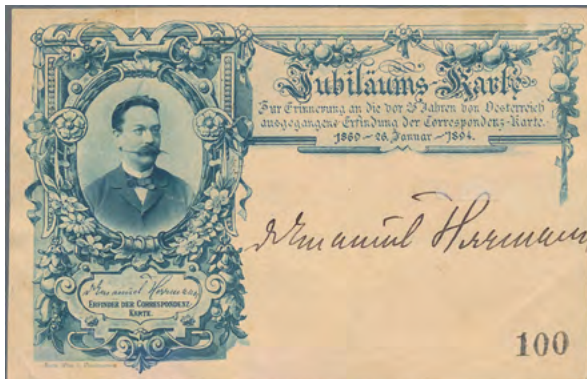 Jubiläums-Karte
Zur Erinnerung an die vor 25 Jahren von Oesterreich
ausgegangene Erfindung der Correspondenz-Karte.
1869 – 26. Januar – 1894.
Dr Emanuel Herrmann
Dr Emanuel Herrmann
ERFINDER DER CORRESPONDENZ-
KARTE.
100